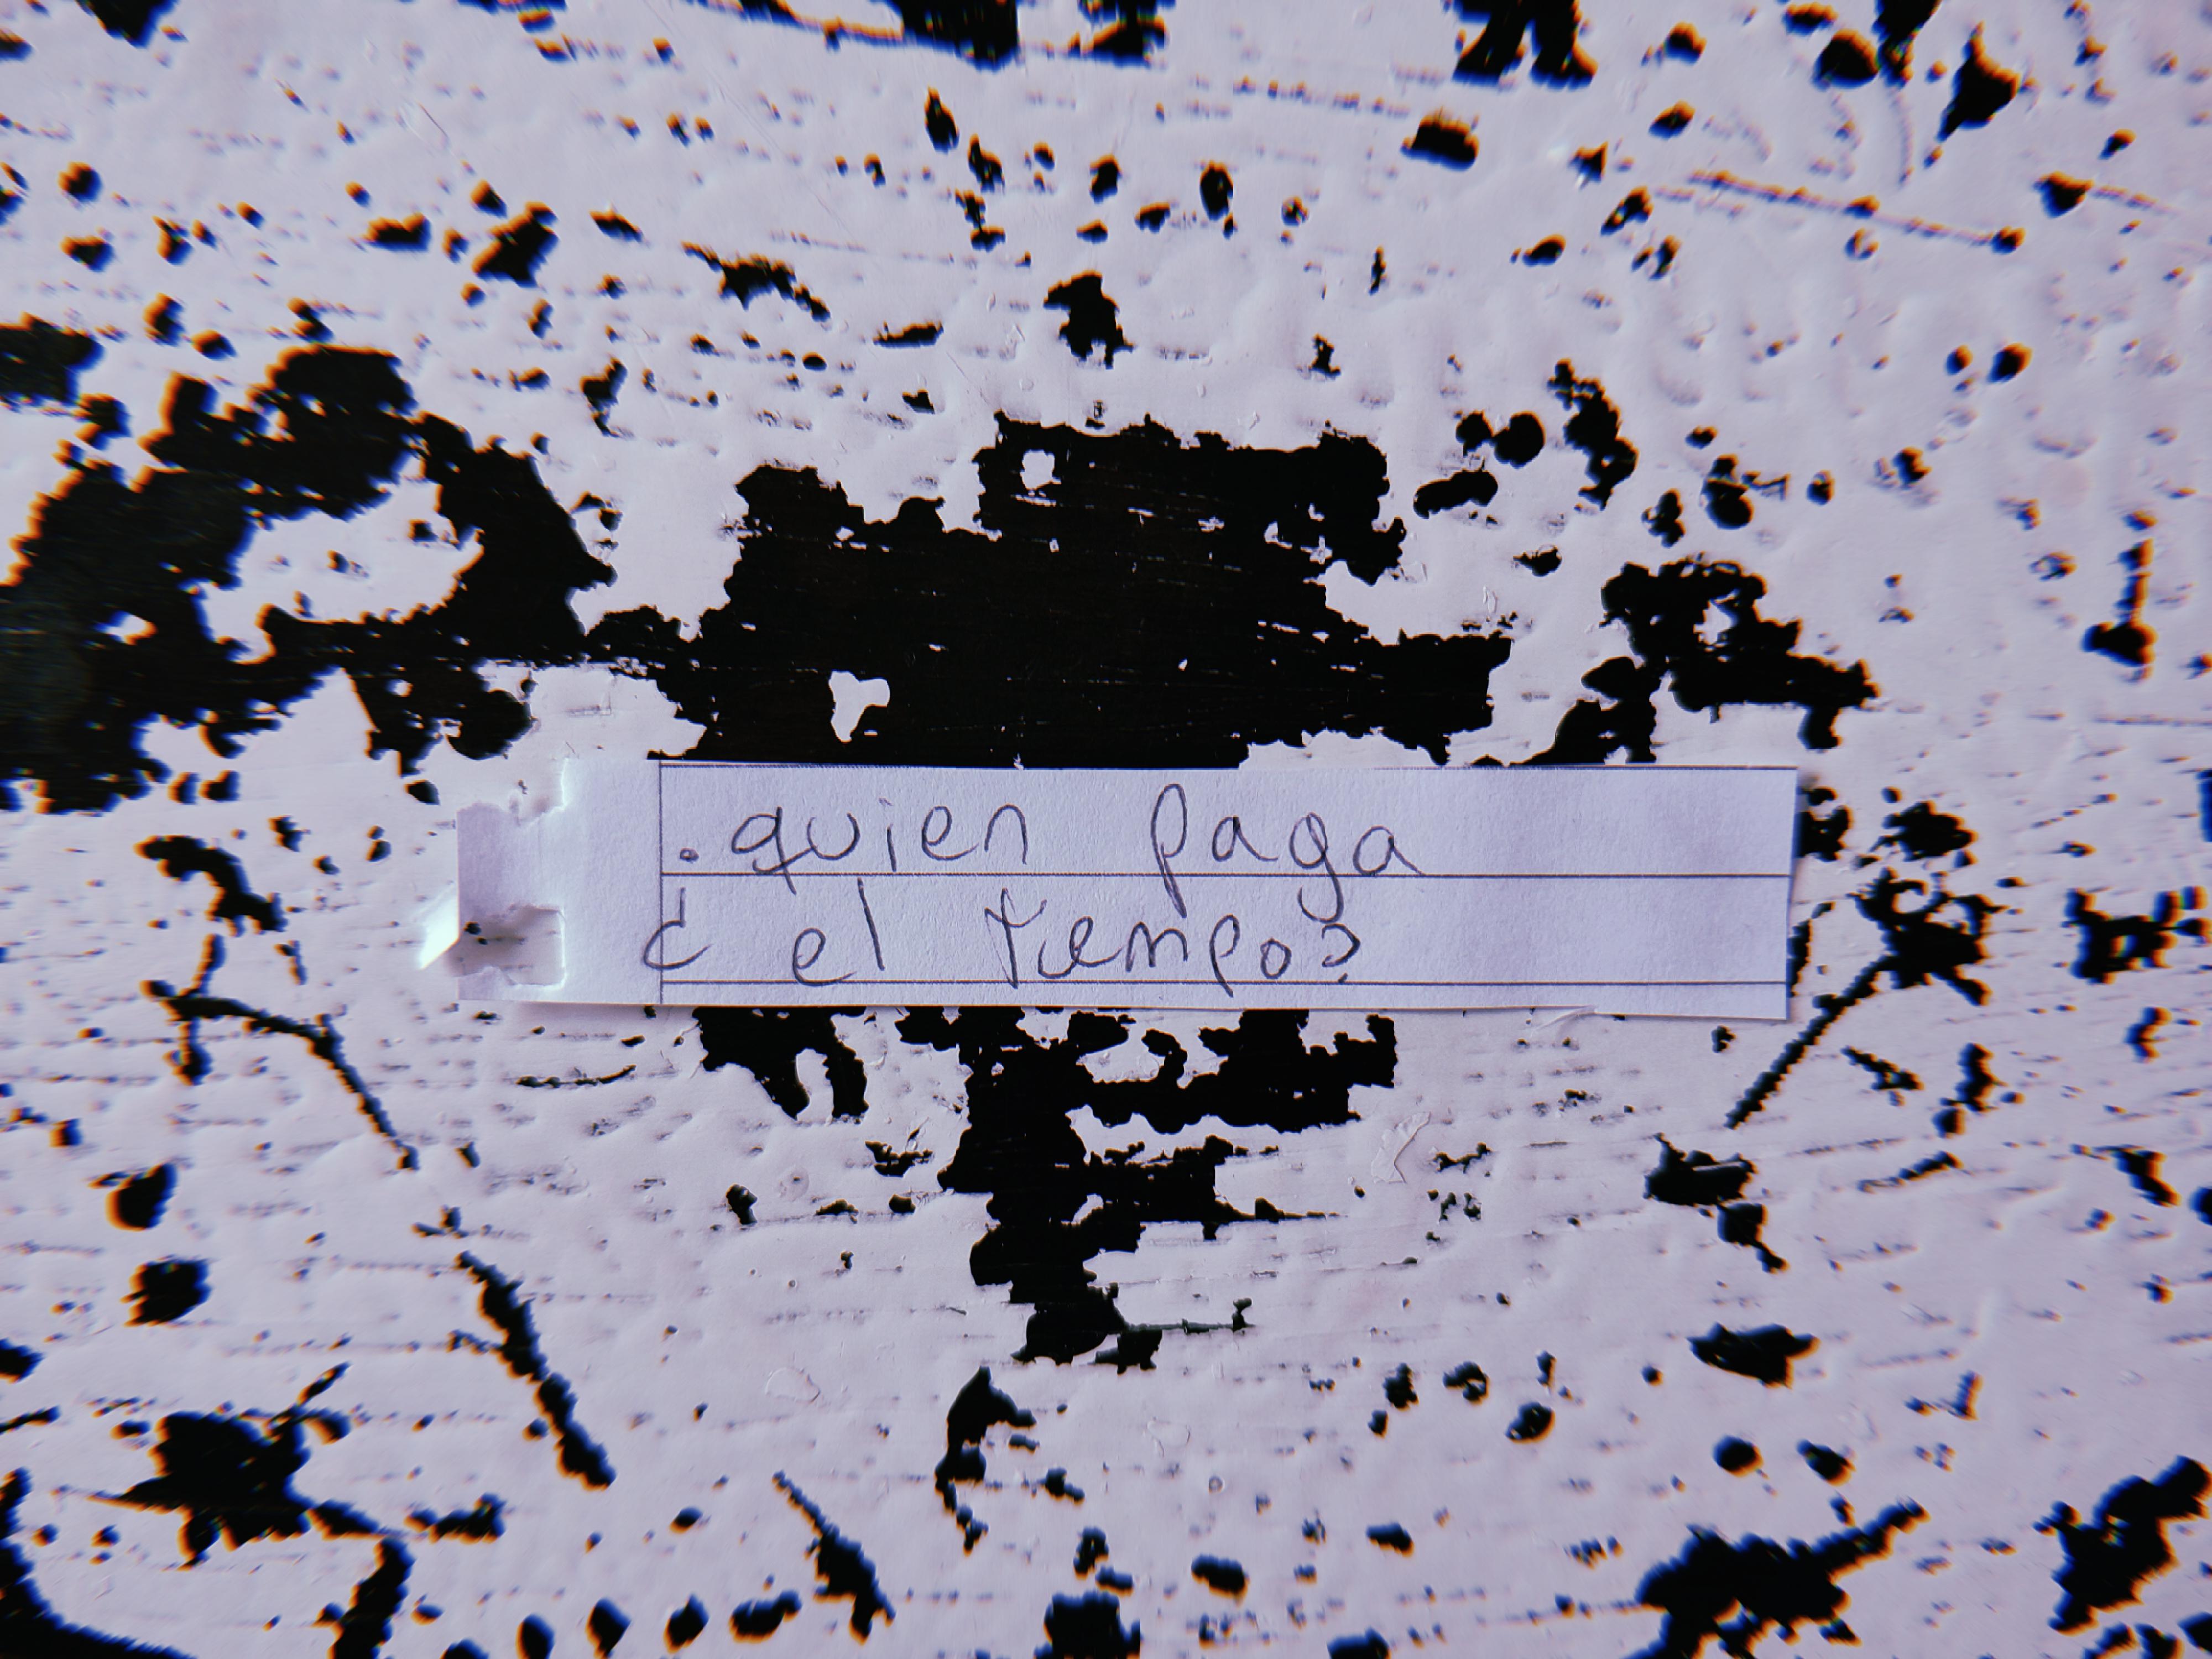 .quien paga
¿ el tiempo?